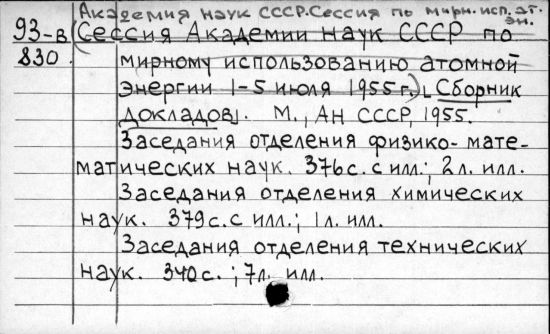 Академия наук СССР. Сессия по мирн. исп. ат. эн.
93-в (Сессия Академии наук СССР по
830. мирному использованию атомной
энергии 1-5 июля 1955 г.) Сборник
докладов. М., АН СССР, 1955.
Заседания отделения физико-мате-
матических наук. 376 с. с илл.; 2 л. илл.
Заседания отделения химических
наук. 379 с. с илл.; 1 л. илл.
Заседания отделения технических
наук. 340 с.; 7 л. илл.